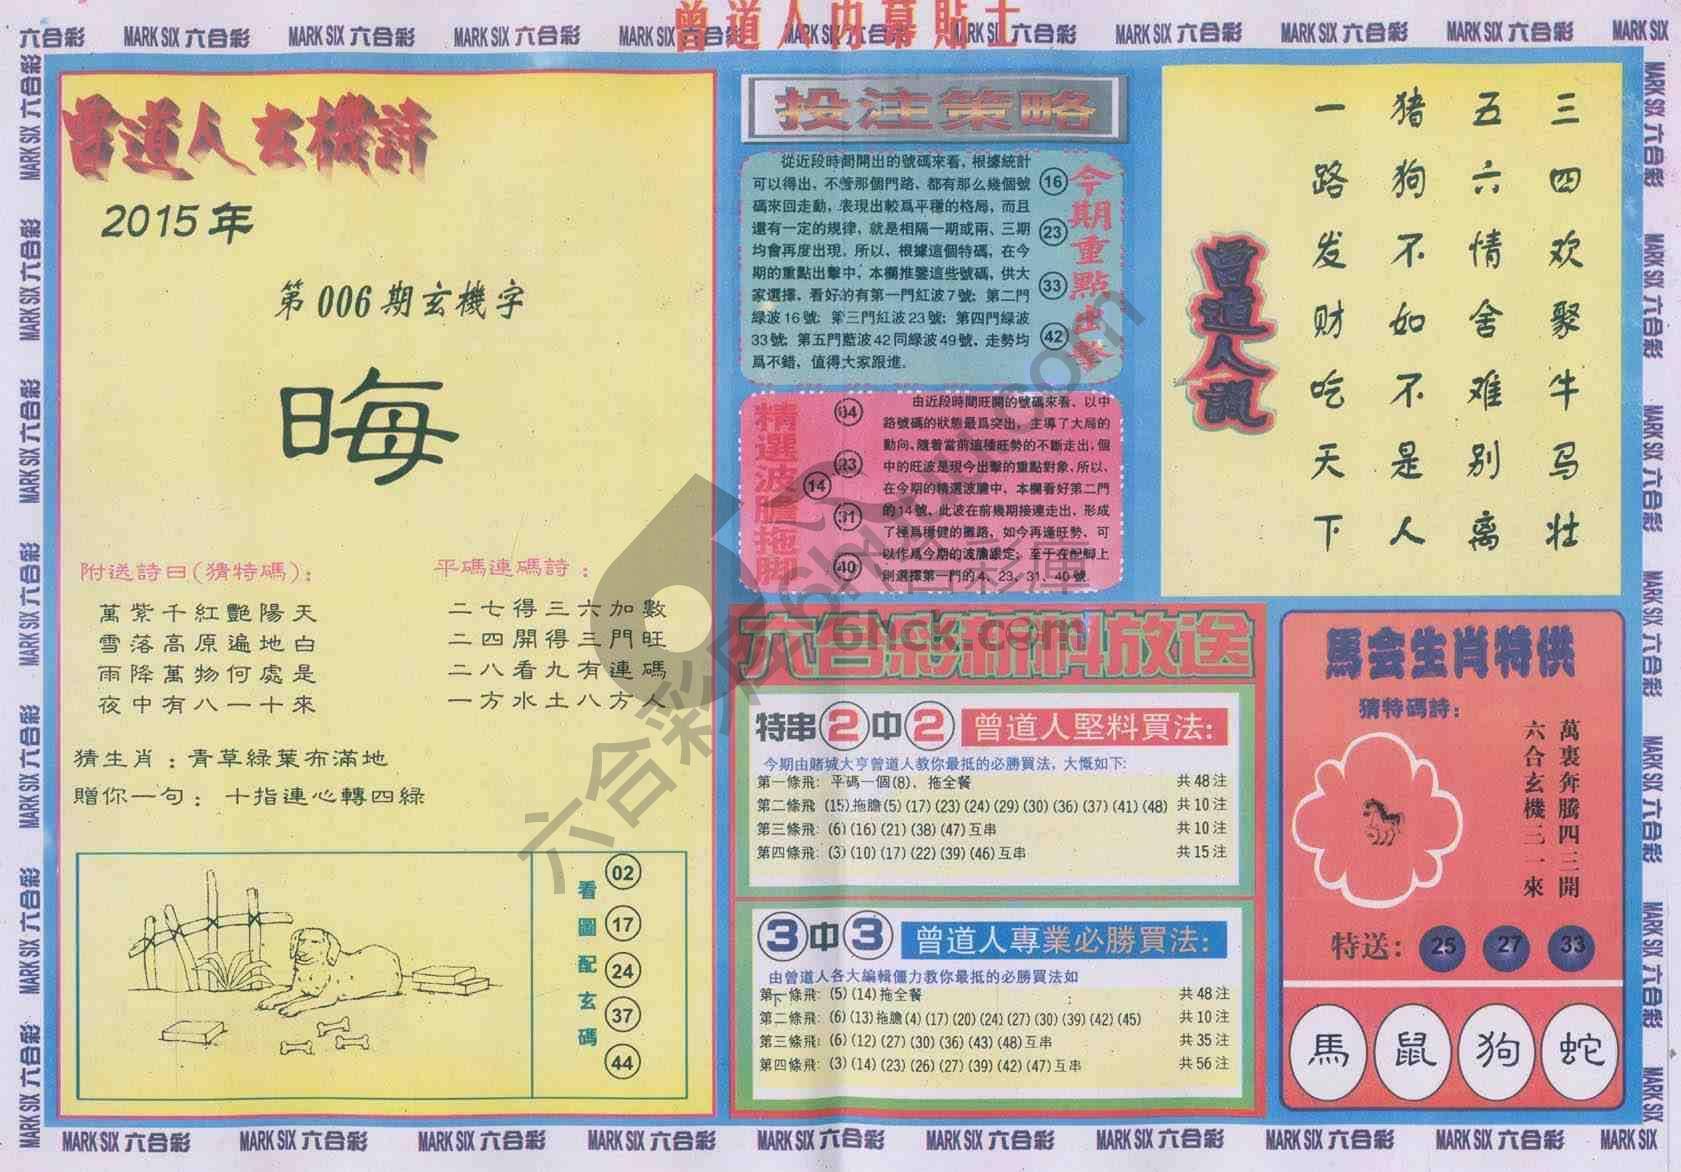 曾道人内幕貼士
曾道人玄機詩
2015年
第006期玄機字
晦
附送詩曰(猜特碼)：
萬紫千紅艷陽天
雪落高原遍地白
雨降萬物何處是
夜中有八一十來
平碼連碼詩：
二七得三六加數
二四開得三門旺
二八看九有連碼
一方水土八方人
猜生肖：青草綠葉布滿地
贈你一句：十指連心轉四緑
看圖配玄碼
02
17
24
37
44
投注策略
從近段時間開出的號碼來看，根據統計
可以得出，不管那個門路、都有那么幾個號
碼來回走動，表現出較爲平穩的格局，而且
還有一定的規律，就是相隔一期或兩、三期
均會再度出現，所以，根據這個特碼，在今
期的重點出擊中，本欄推鑒這些號碼，供大
家選擇，看好的有第一門紅波7號；第二門
綠波16號；第三門紅波23號；第四門綠波
33號；第五門藍波42同綠波49號，走勢均
爲不錯，值得大家跟進。
16
23
33
42
今期重點出擊
精選波膽拖脚
04
23
14
31
40
由近段時間旺開的號碼來看、以中
路號碼的狀態最爲突出，主導了大局的
動向，隨着當前這種旺勢的不斷走出，個
中的旺波是現今出擊的重點對象，所以、
在今期的精選波膽中、本欄看好第二門
的14號、此波在前幾期接連走出，形成
了極爲穩健的攤路，如今再逢旺勢、可
以作爲今期的波膽跟定；至于在配脚上
則選擇第一門的4、23、31、40號.
六合彩新料放送
特串2中2 曾道人堅料買法：
今期由賭城大亨曾道人教你最抵的必勝買法，大慨如下：
第一條飛：平碼一個(8)、拖全餐 共48注
第二條飛 (15)拖膽(5)(17)(23)(24)(29)(30)(36)(37)(41)(48) 共10注
第三條飛：(6)(16)(21)(38)(47)互串 共10注
第四條飛：(3)(10)(17)(22)(39)(46)互串 共15注
3中3 曾道人專業必勝買法：
由曾道人各大編輯僵力教你最抵的必勝買法如
下：
第一條飛：(5)(14)拖全餐 共48注
第二條飛：(6)(13)拖膽(4)(17)(20)(24)(27)(30)(39)(42)(45) 共10注
第三條飛：(6)(12)(27)(30)(36)(43)(48)互串 共35注
第四條飛：(3)(14)(23)(26)(27)(39)(42)(47)互串 共56注
三四欢聚牛马壮
五六情舍难别离
猪狗不如不是人
一路发财吃天下
曾道人説
馬会生肖特供
猜特碼詩：
萬裏奔騰四三開
六合玄機三一來
特送：25 27 33
馬 鼠 狗 蛇
MARK SIX 六合彩
6hck.com